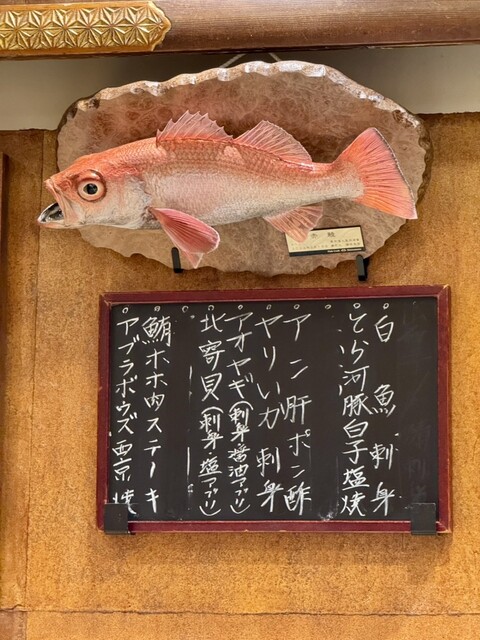 白魚刺身
とら河豚白子塩焼
アン肝ポン酢
ヤリいか刺身
アオヤギ(刺身・醤油アブリ)
北寄貝(刺身・塩アブリ)
鮪ホホ肉ステーキ
アブラボウズ西京焼